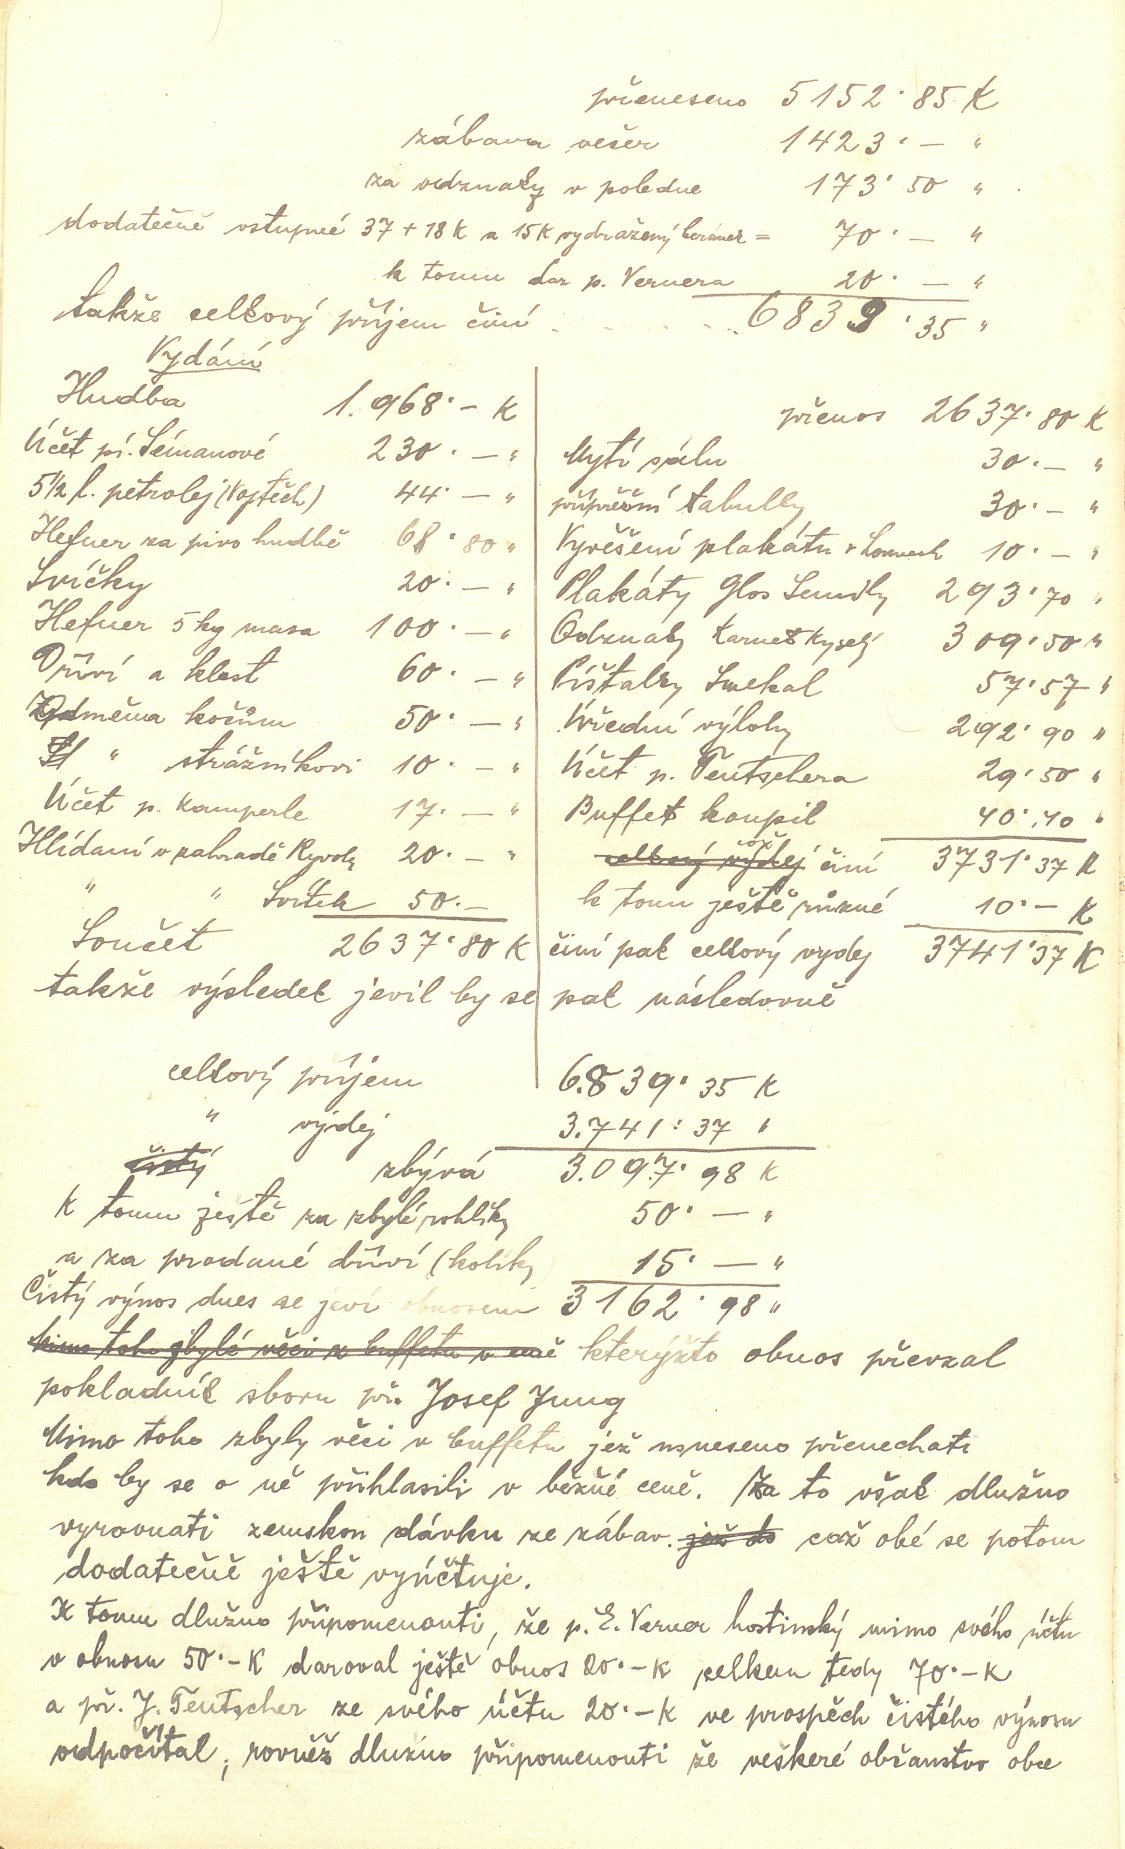 přeneseno 5152·85 K
zábava večer 1423·— "
za odznaky v poledne 173·50 "
dodatečně vstupné 37 + 18 K a 15 K vydražený beránek = 70·— "
k tomu dar p. Vernera 20·— "
takže celkový příjem činí . . . . . 6839·35 "
Vydání
Hudba 1.968·— K
Účet pí. Sémanové 230·— "
5 1/2 l. petrolej (Vojtěch) 44·— "
Hefner za pivo hudbě 68·80 "
Svíčky 20·— "
Hefner 5 kg masa 100·— "
Dříví a klest 60·— "
Odměna kočům 50·— "
" strážníkovi 10·— "
Účet p. Kamperle 17·— "
Hlídání v zahradě Ryvoly 20·— "
" " Svitek 50·—
Součet 2637·80 K
přenos 2637·80 K
Mytí sálu 30·— "
příprežní tabulky 30·— "
Vyvěšení plakátu v 10·— "
Plakáty Glos Semily 293·70 "
Odznaky Karnet Kyselý 309·50 "
Píšťalky Smekal 57·57 "
Úřední výlohy 292·90 "
Účet p. Teutschera 29·50 "
Buffet koupil 40·40 "
celkový výdej činí 3731·37 K
k tomu ještě různé 10·— K
činí pak celkový vydej 3741·37 K
takže výsledek jevil by se pak následovně
celkový příjem 6.839·35 K
" výdej 3.741:37 "
čistý zbývá 3.097·98 K
K tomu ještě za zbylé rohlíky 50·— "
a za prodané dříví (kolíky) 15·— "
Čistý výnos dnes se jeví obnosem 3162·98 "
Mimo toho zbylé věci z buffetu v ceně kterýžto obnos převzal
pokladník sboru př. Josef Jung
Mimo toho zbyly věci v buffetu jež usneseno přenechati
kdo by se o ně přihlasili v běžné ceně. Za to však dlužno
vyrovnati zemskou dávku ze zábav. jež do což obé se potom
dodatečně ještě vyúčtuje.
K tomu dlužno připomenouti, že p. E. Verner hostinský mimo svého účtu
v obnosu 50·— K daroval ještě obnos 20·— K celkem tedy 70·— K
a př. J. Teutscher ze svého účtu 20·— K ve prospěch čistého výnosu
odpočítal; rovněž dlužno připomenouti že veškeré občanstvo obce